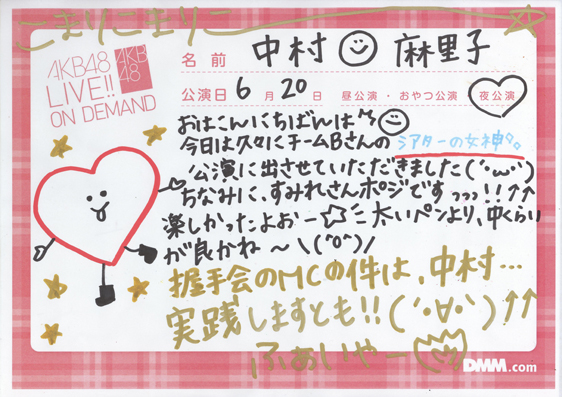 こまりこまりこ
AKB48
LIVE!!
ON DEMAND
AKB
48
名前 中村 麻里子
公演日 6月20日 昼公演・おやつ公演 夜公演
おはこんにちばんは
今日は久々にチームBさんのシアターの女神
公演に出させていただきました(´・ω・`)
ちなみに、すみれさんポジです♪♪♪!!↑↑
楽しかったよおー☆ミ 太いペンより、中くらい
が良かね〜\(^o^)/
握手会のMCの件は、中村…
実践しますとも!!(´・∀・`)↑↑
ふぁいやー
DMM.com